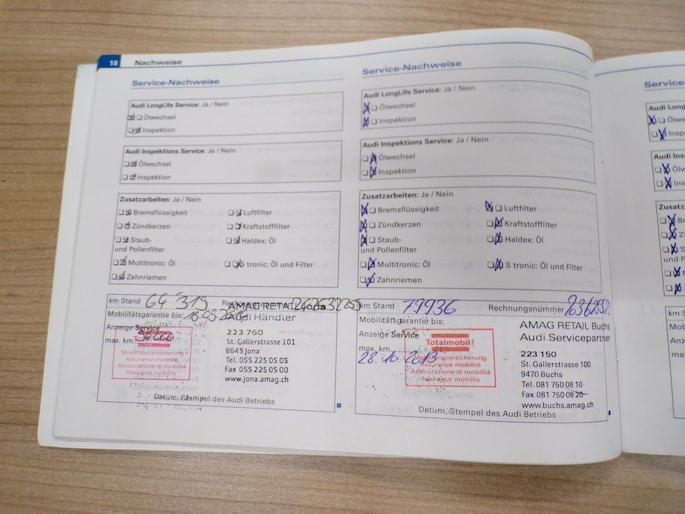 18 Nachweise
Service-Nachweise
Audi LongLife Service: Ja / Nein
Ölwechsel
Inspektion
Audi Inspektions Service: Ja / Nein
Ölwechsel
Inspektion
Zusatzarbeiten: Ja / Nein
Bremsflüssigkeit Luftfilter
Zündkerzen Kraftstofffilter
Staub- Haldex: Öl
und Pollenfilter
Multitronic: Öl S tronic: Öl und Filter
Zahnriemen
km Stand 64 319
AMAG RETAIL Jona
Mobilitätsgarantie bis: Audi Händler
Anzeige Service
max. km
223 760
St. Gallerstrasse 101
8645 Jona
Tel. 055 225 05 05
Fax 055 225 05 00
www.jona.amag.ch
Datum, Stempel des Audi Betriebs
Service-Nachweise
Audi LongLife Service: Ja / Nein
Ölwechsel
Inspektion
Audi Inspektions Service: Ja / Nein
Ölwechsel
Inspektion
Zusatzarbeiten: Ja / Nein
Bremsflüssigkeit Luftfilter
Zündkerzen Kraftstofffilter
Staub- Haldex: Öl
und Pollenfilter
Multitronic: Öl S tronic: Öl und Filter
Zahnriemen
km Stand 79936 Rechnungsnummer
Mobilitätsgarantie bis:
Anzeige Service
max. km
28.10.2013
Totalmobil!
Assurance mobilité
Assicurazione di mobilità
Assurance mobility
AMAG RETAIL Buchs
Audi Servicepartner
223 150
St. Gallerstrasse 100
9470 Buchs
Tel. 081 750 08 10
Fax 081 750 08 20
www.buchs.amag.ch
Datum, Stempel des Audi Betriebs
Service
Audi LongL
Ölwe
Inspe
Audi Ins
Zusatz